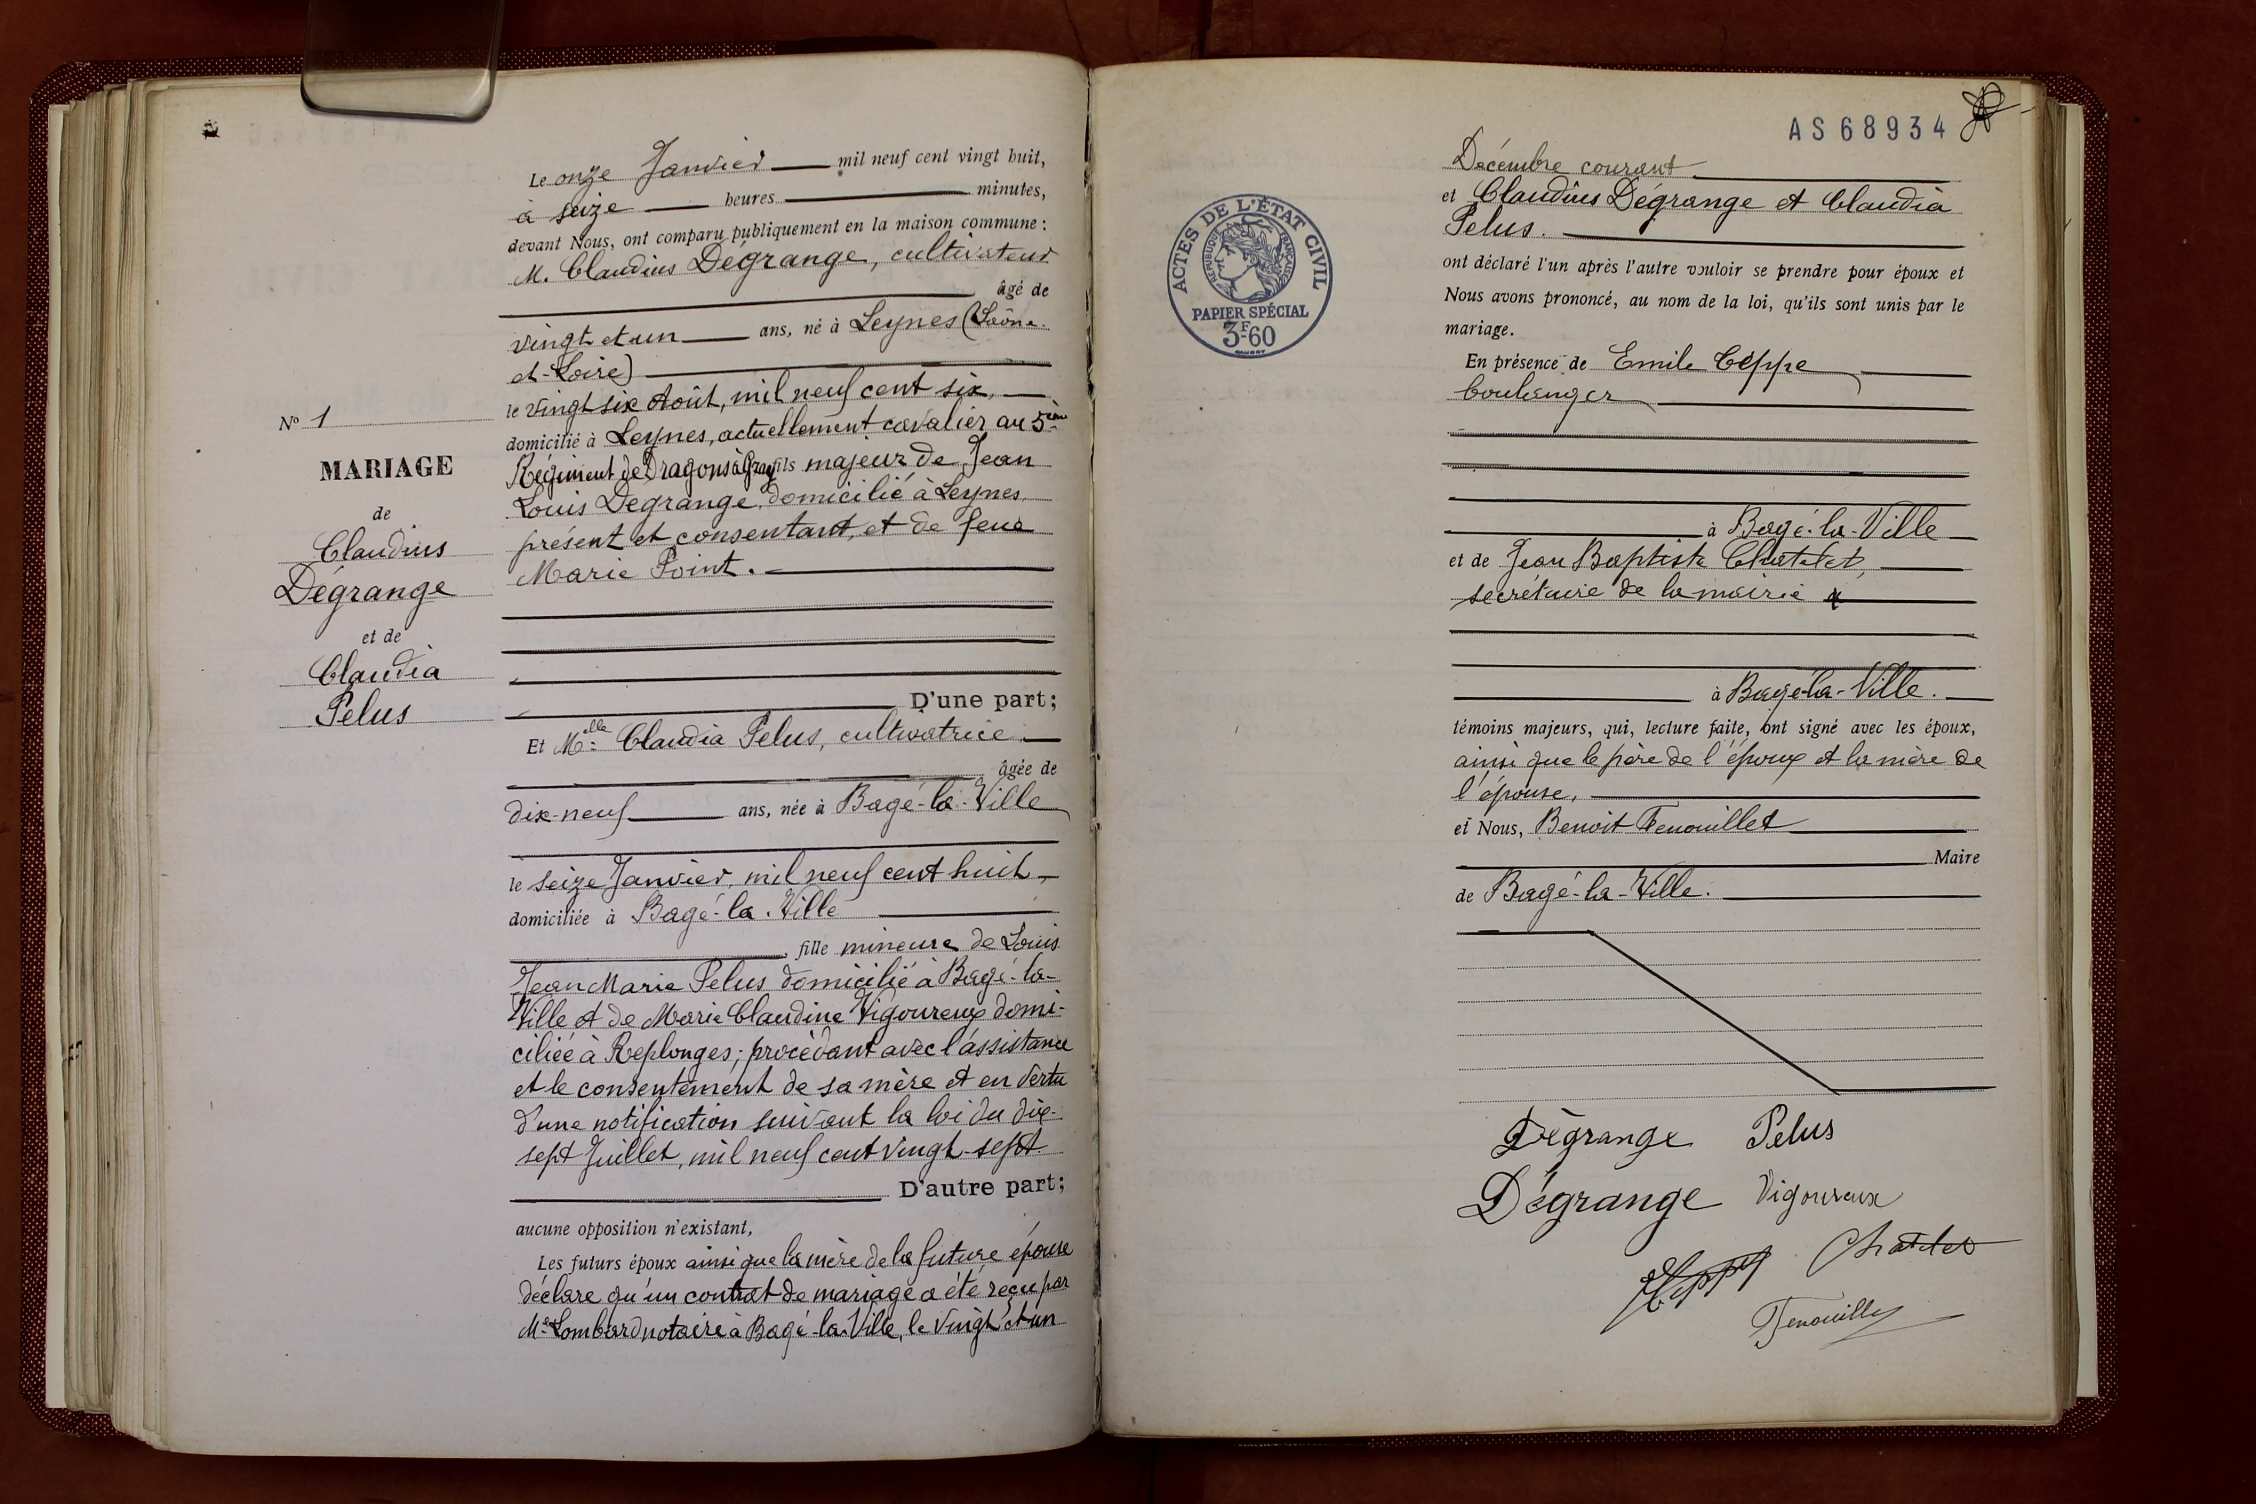 Le onze Janvier mil neuf cent vingt huit,
à seize heures minutes,
devant Nous, ont comparu publiquement en la maison commune :
M. Claudius Dégrange, cultivateur
âgé de
vingt et un ans, né à Leynes (Saône-
et-Loire)
le vingt six Août, mil neuf cent six,
domicilié à Leynes, actuellement cavalier au 5ème
Régiment de Dragons à Gray fils majeur de Jean
Louis Dégrange domicilié à Leynes
présent et consentant, et de feue
Marie Point.
D'une part;
Et Melle Claudia Pelus, cultivatrice
âgée de
dix-neuf ans, née à Bagé-la-Ville
le seize Janvier, mil neuf cent huit
domiciliée à Bagé-la-Ville
fille mineure de Louis
Jean Marie Pelus domicilié à Bagé-la-
Ville et de Marie Claudine Vigoureux domi-
ciliée à Replonges; procédant avec l'assistance
et le consentement de sa mère et en vertu
d'une notification suivant la loi du dix-
sept Juillet, mil neuf cent vingt-sept.
D'autre part;
aucune opposition n'existant,
Les futurs époux ainsi que la mère de la future épouse
déclare qu'un contrat de mariage a été reçu par
Me Lombard notaire à Bagé-la-Ville, le vingt et un
No 1
MARIAGE
de
Claudius
Dégrange
et de
Claudia
Pelus
AS68934
ACTES DE L'ÉTAT CIVIL
RÉPUBLIQUE FRANÇAISE
PAPIER SPÉCIAL
3F60
Décembre courant
et Claudius Dégrange et Claudia
Pelus.
ont déclaré l'un après l'autre vouloir se prendre pour époux et
Nous avons prononcé, au nom de la loi, qu'ils sont unis par le
mariage.
En présence de Emile Ceppe
boulanger
à Bagé-la-Ville
et de Jean Baptiste Chatelet,
secrétaire de la mairie
à Bagé-la-Ville.
témoins majeurs, qui, lecture faite, ont signé avec les époux,
ainsi que le père de l'époux et la mère de
l'épouse,
et Nous, Benoit Fenouillet
Maire
de Bagé-la-Ville.
Dégrange Pelus
Dégrange Vigoureux
Chatelet
Fenouillet